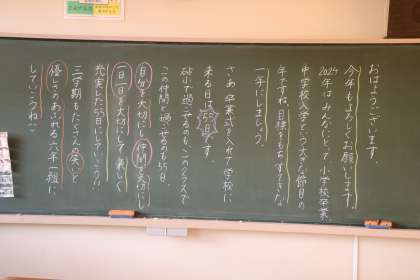 おはようございます。
今年もよろしくお願いします。
2024年はみんなにとって小学校卒業、
中学校入学という大きな節目の
年ですね。目標をもちすてきな
一年にしましょう。
さあ、卒業式を入れて学校に
来る日は55日です。
砧小で過ごせるのも、このクラスで
この仲間と過ごせるのも55日。
自分を大切にし、仲間を大切にし
一日一日を大切にして楽しく
充実した55日にしていこう!!
三学期もたくさんの笑いと
優しさのあふれる六年一組に
していこうね